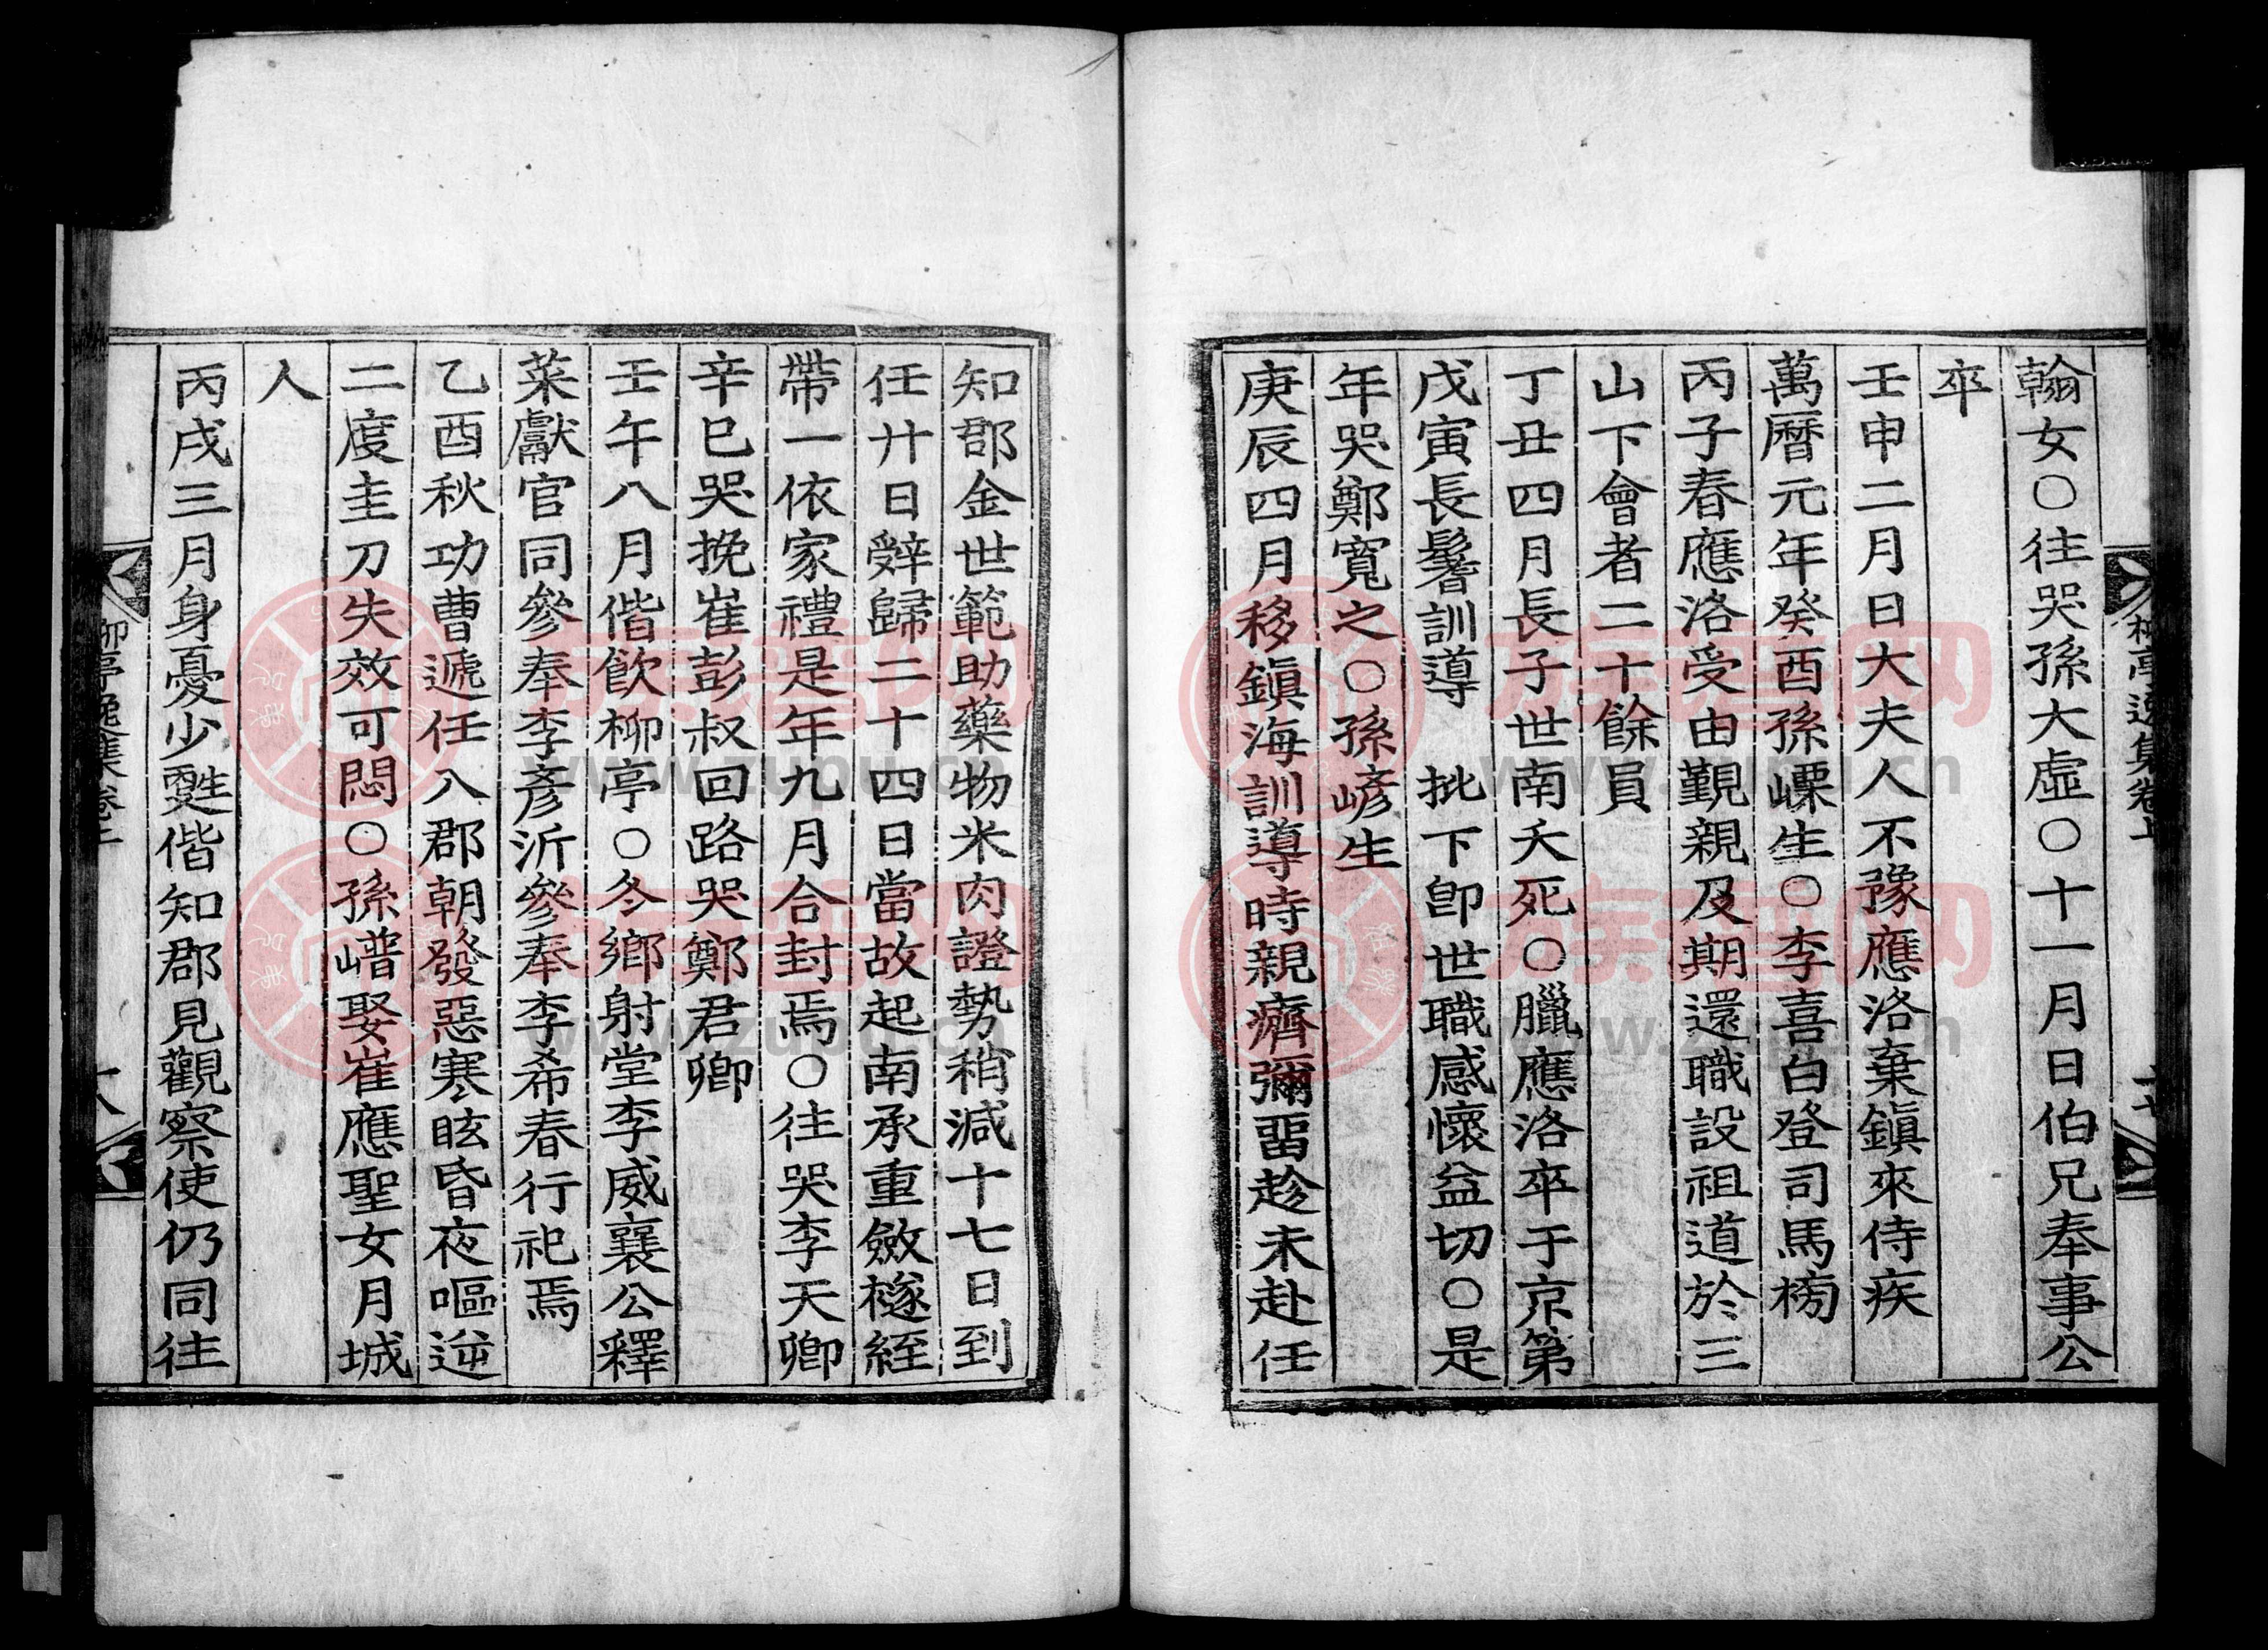 翰女○往哭孫大虛○十一月日伯兄奉事公
卒
壬申二月日大夫人不豫應洛棄鎭來侍疾
萬曆元年癸酉孫㠥生○李喜白登司馬榜
丙子春應洛受由覲親及期還職設祖道於三
山下會者二十餘員
丁丑四月長子世南夭死○臘應洛卒于京第
戊寅長鬐訓導 批下卽世職感懷益切○是
年哭鄭寬之○孫嵃生
庚辰四月移鎭海訓導時親癠彌留趁未赴任
柳亭逸集卷上
十七
知郡金世範助藥物米肉證勢稍減十七日到
任廿日辤歸二十四日當故起南承重斂襚絰
帶一依家禮是年九月合封焉○往哭李天卿
辛巳哭挽崔彭叔回路哭鄭君卿
壬午八月偕飮柳亭○冬鄕射堂李威襄公釋
菜獻官同參奉李彥沂參奉李希春行祀焉
乙酉秋功曹遞任八郡朝發惡寒眩昏夜嘔逆
二度圭刀失效可悶○孫㟳娶崔應聖女月城
人
丙戌三月身憂少甦偕知郡見觀察使仍同往
柳亭逸集卷上
十八
族譜网
www.zupu.cn
族譜网
www.zupu.cn
族譜网
www.zupu.cn
族譜网
www.zupu.cn